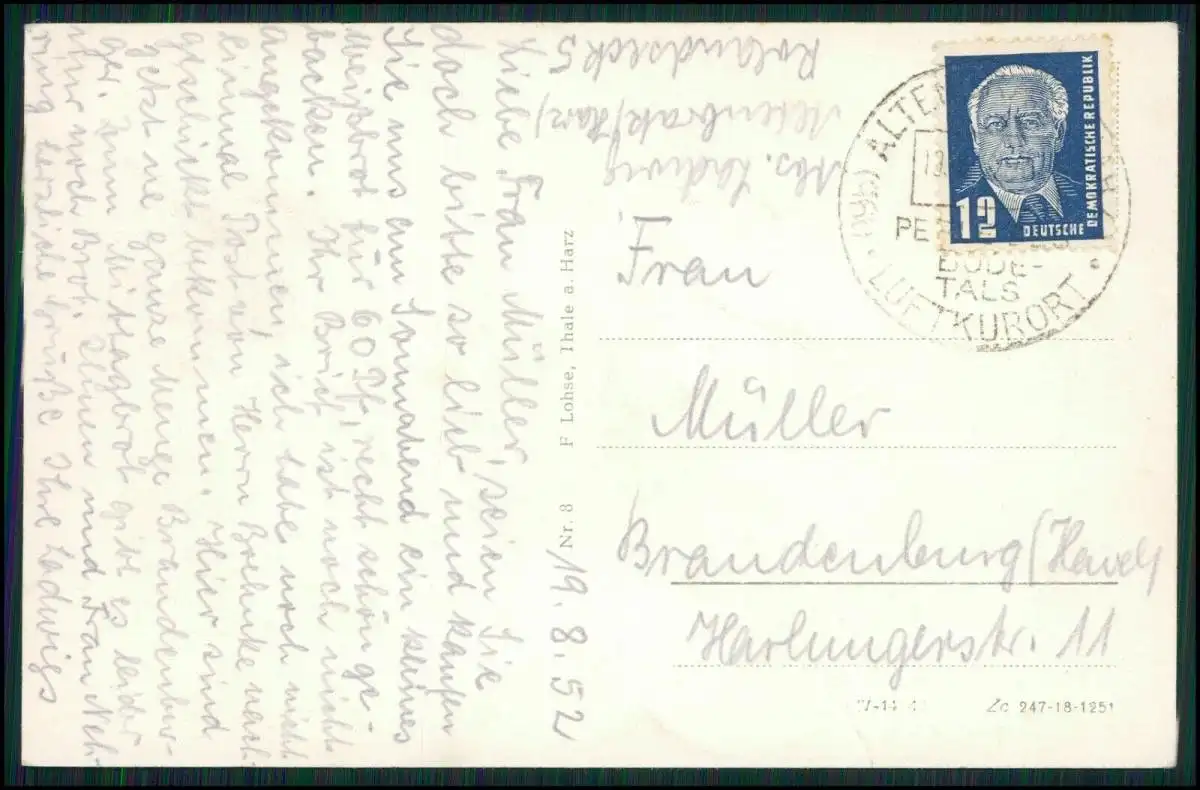 19.8.52
Liebe Frau Müller, seien Sie
doch bitte so lieb und kaufen
Sie uns am Sonnabend ein kleines
Weißbrot für 60 Pf, recht schön ge-
backen. Ihr Brief ist noch nicht
angekommen, ich habe noch nicht
einmal Post von Herrn Boehnke nach-
geschickt bekommen. Hier sind
jetzt ne ganze Menge Brandenbur-
ger. Zum Mittagbrot gibt es leider
nur noch Brot. Ihnen und Frau Neh-
ring herzliche Grüße Ihre Ladwigs
Nr. 8 F Lohse, Thale a. Harz
Abs. Ladwig
Altenbrak/Harz)
Rolandseck 5
ALTEN
(HARZ)
13
PE
BODE-
TALS
LUFTKURORT
12
DEUTSCHE
DEMOKRATISCHE REPUBLIK
Frau
Müller
Brandenburg/Havel
Harlungerstr. 11
247-18-1251